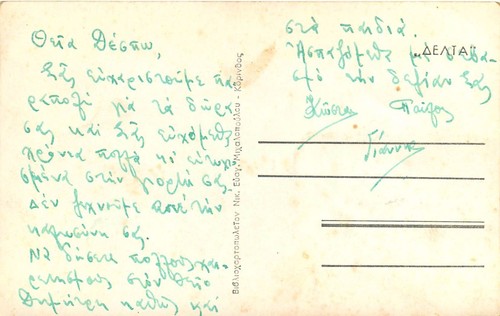 Θεία Δέσπω,
Σᾶς εὐχαριστοῦμε πα
ραπολύ γιά τά δῶρα
σας καί Σᾶς εὐχόμεθα
χρόνια πολλά κι εὐτυχι
σμένα στήν γιορτή σας.
Δέν ξεχνοῦμε ποτέ τήν
καλωσύνη σας.
Νά δώσετε πολλούς χαι
ρετισμούς στόν θεῖο
Δημήτρη καθώς καί
στά παιδιά.
Ἀσπαζόμεθα με σεβα
σμό τήν δεξιάν Σας
Κώστας Παῦλος
Γιάννης
„ΔΕΛΤΑ"
Βιβλιοχαρτοπωλεῖον Νικ. Εὐαγ. Μιχαλοπούλου - Κόρινθος